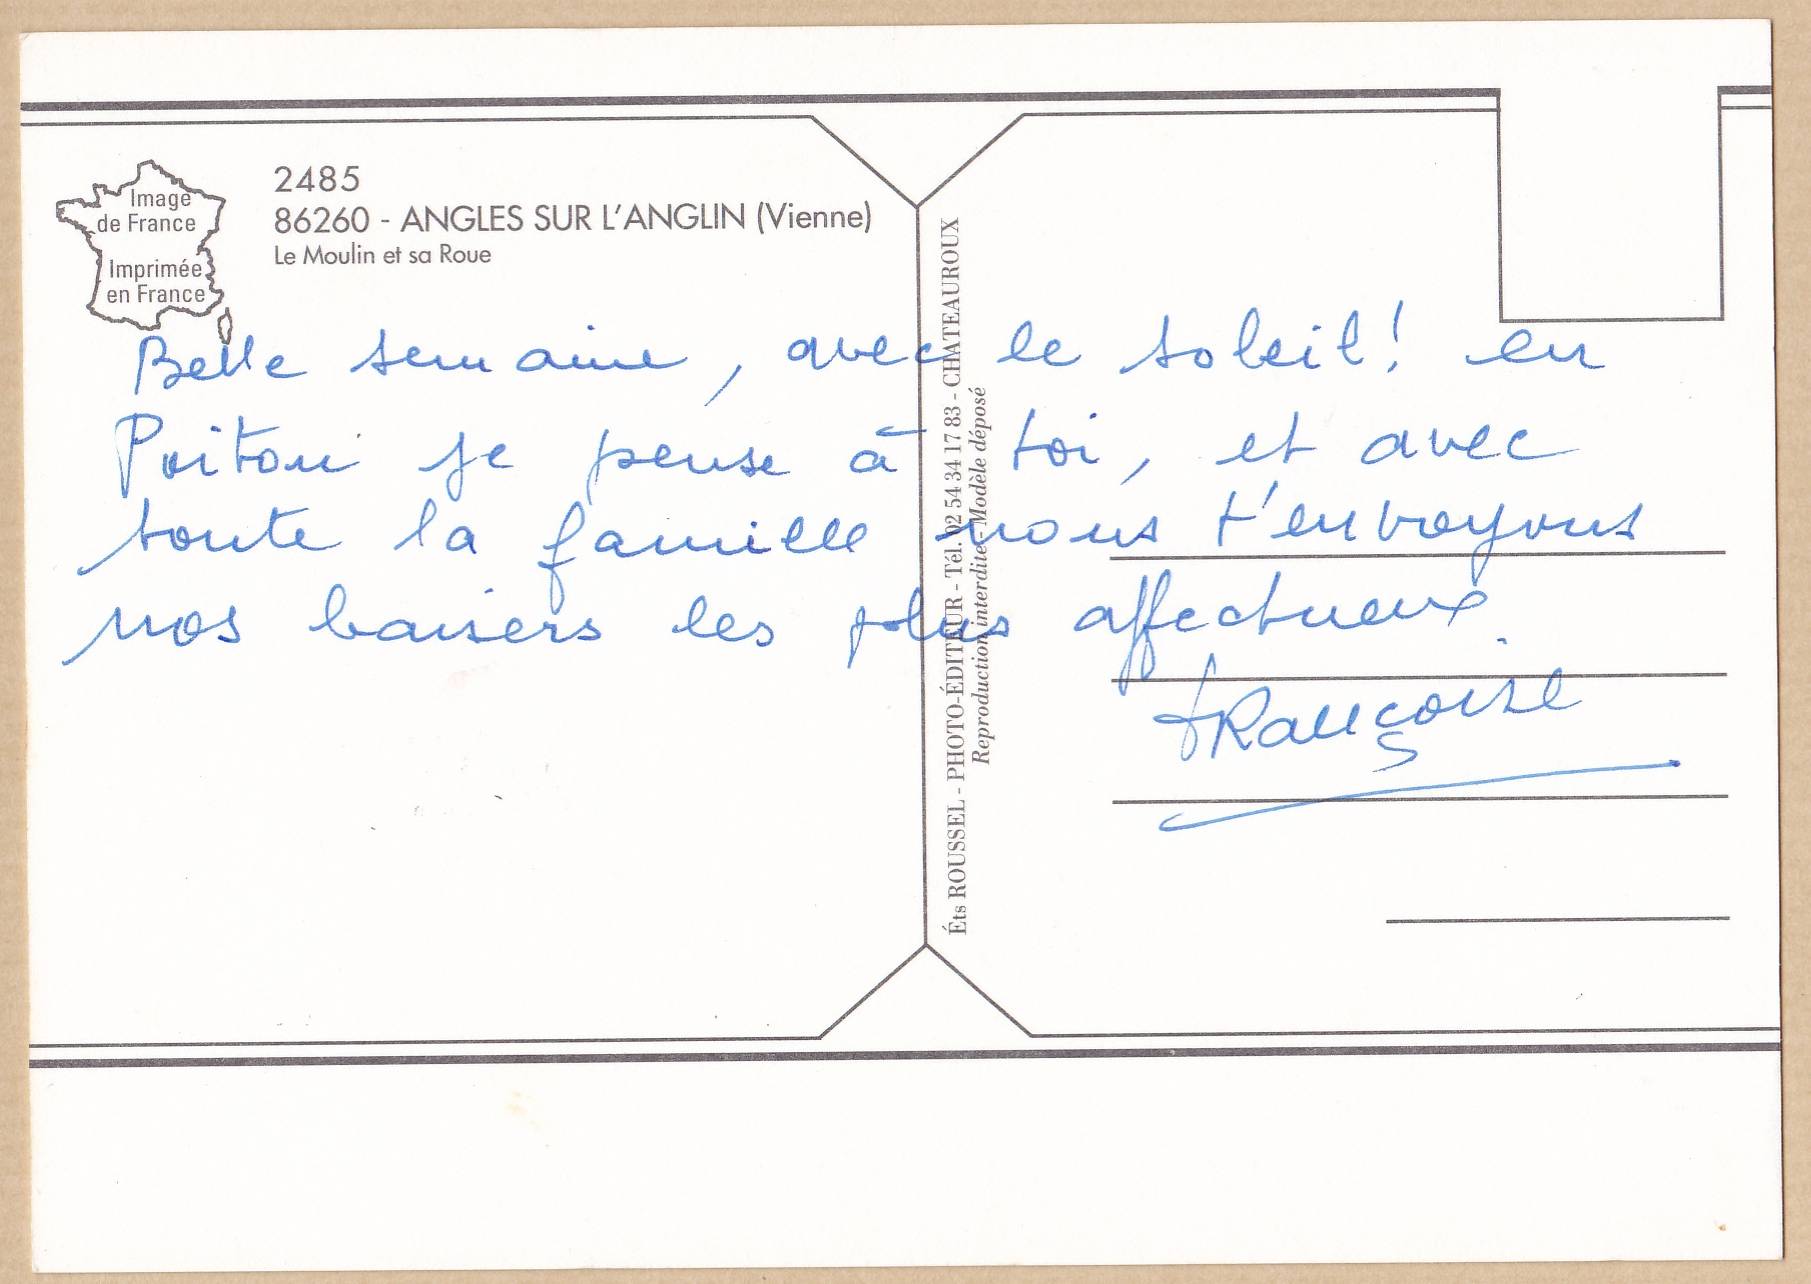 Image
de France
Imprimée
en France
2485
86260 - ANGLES SUR L'ANGLIN (Vienne)
Le Moulin et sa Roue
Belle semaine, avec le soleil! en
Poitou je pense à toi, et avec
toute la famille nous t'envoyons
nos baisers les plus affectueux.
Françoise
Éts ROUSSEL - PHOTO-ÉDITEUR - Tél. 02 54 34 17 83 - CHATEAUROUX
Reproduction interdite - Modèle déposé